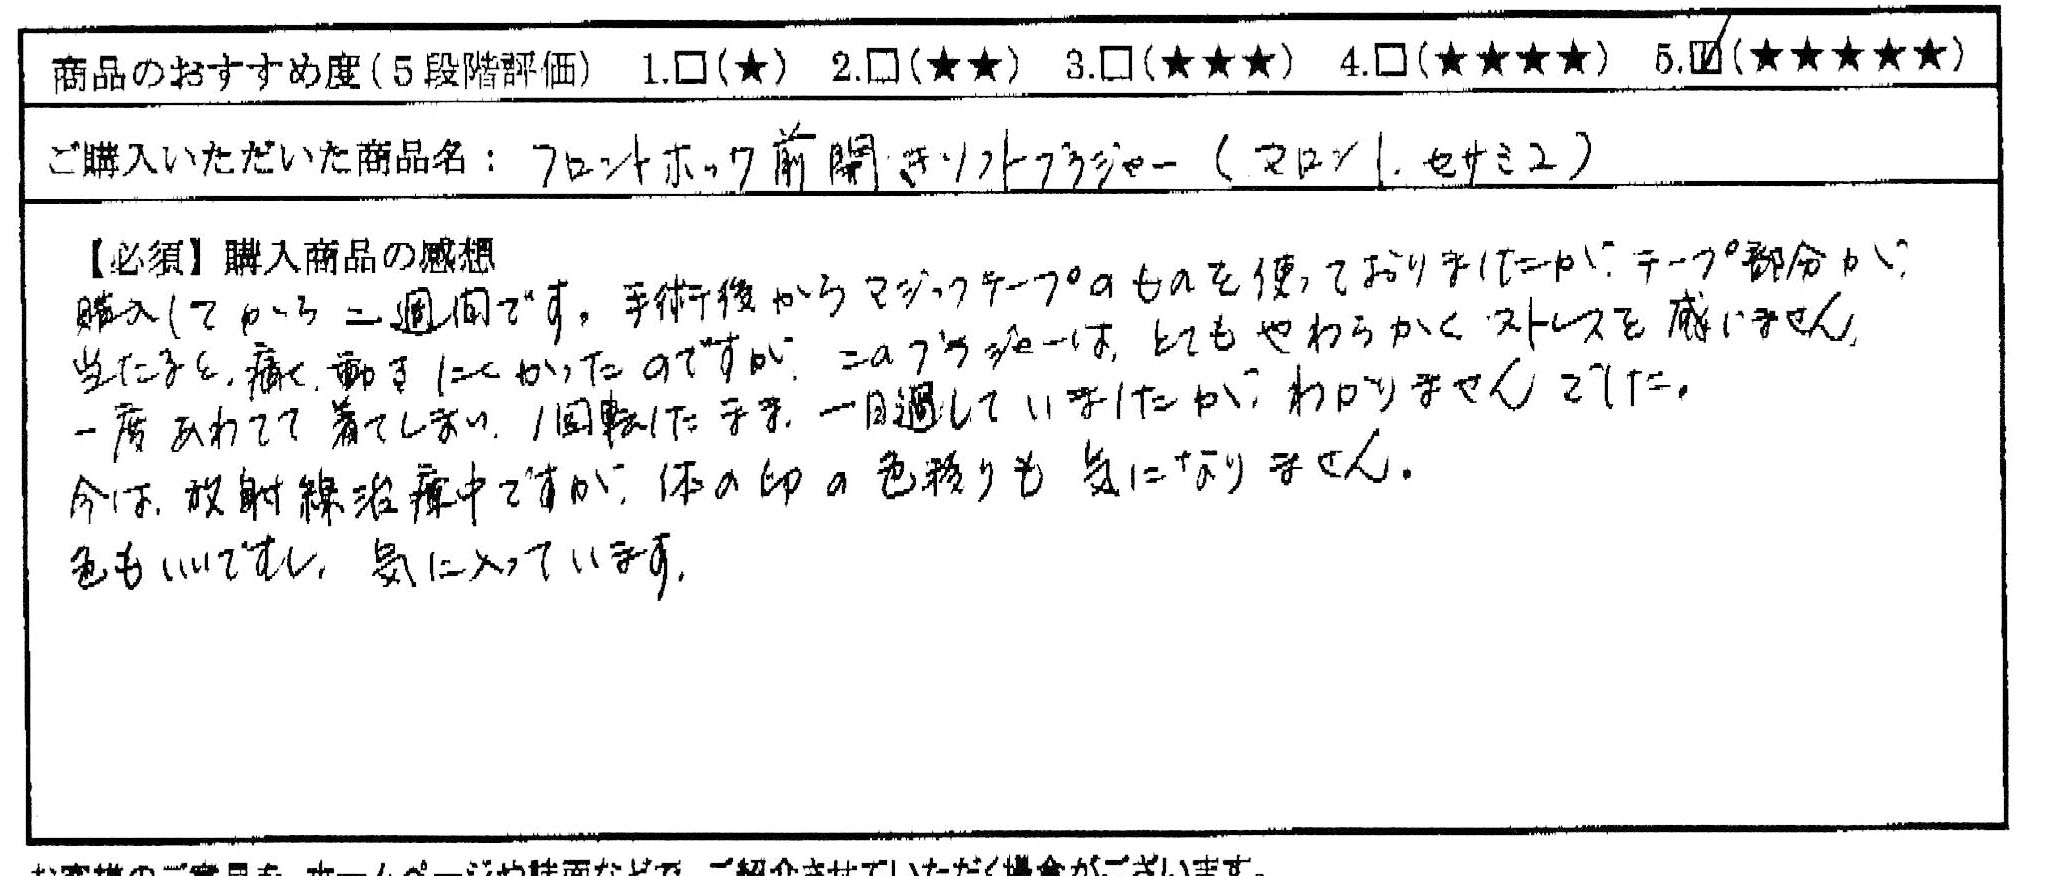 商品のおすすめ度(5段階評価) 1.□(★) 2.□(★★) 3.□(★★★) 4.□(★★★★) 5.☑(★★★★★)
ご購入いただいた商品名: フロントホック前開きソフトブラジャー(マロン1.セサミ2)
【必須】購入商品の感想
購入してから二週間です。手術後からマジックテープのものを使っておりましたが、テープ部分が、
当たると、痛く、動きにくかったのですが、このブラジャーは、とてもやわらかくストレスを感じません。
一度あわてて着てしまい、1回転したまま、一日過していましたが、わかりませんでした。
今は、放射線治療中ですが、体の印の色移りも気になりません。
色もいいですし、気に入っています。
お客様のご意見を、ホームページや誌面などで、ご紹介させていただく場合がございます。